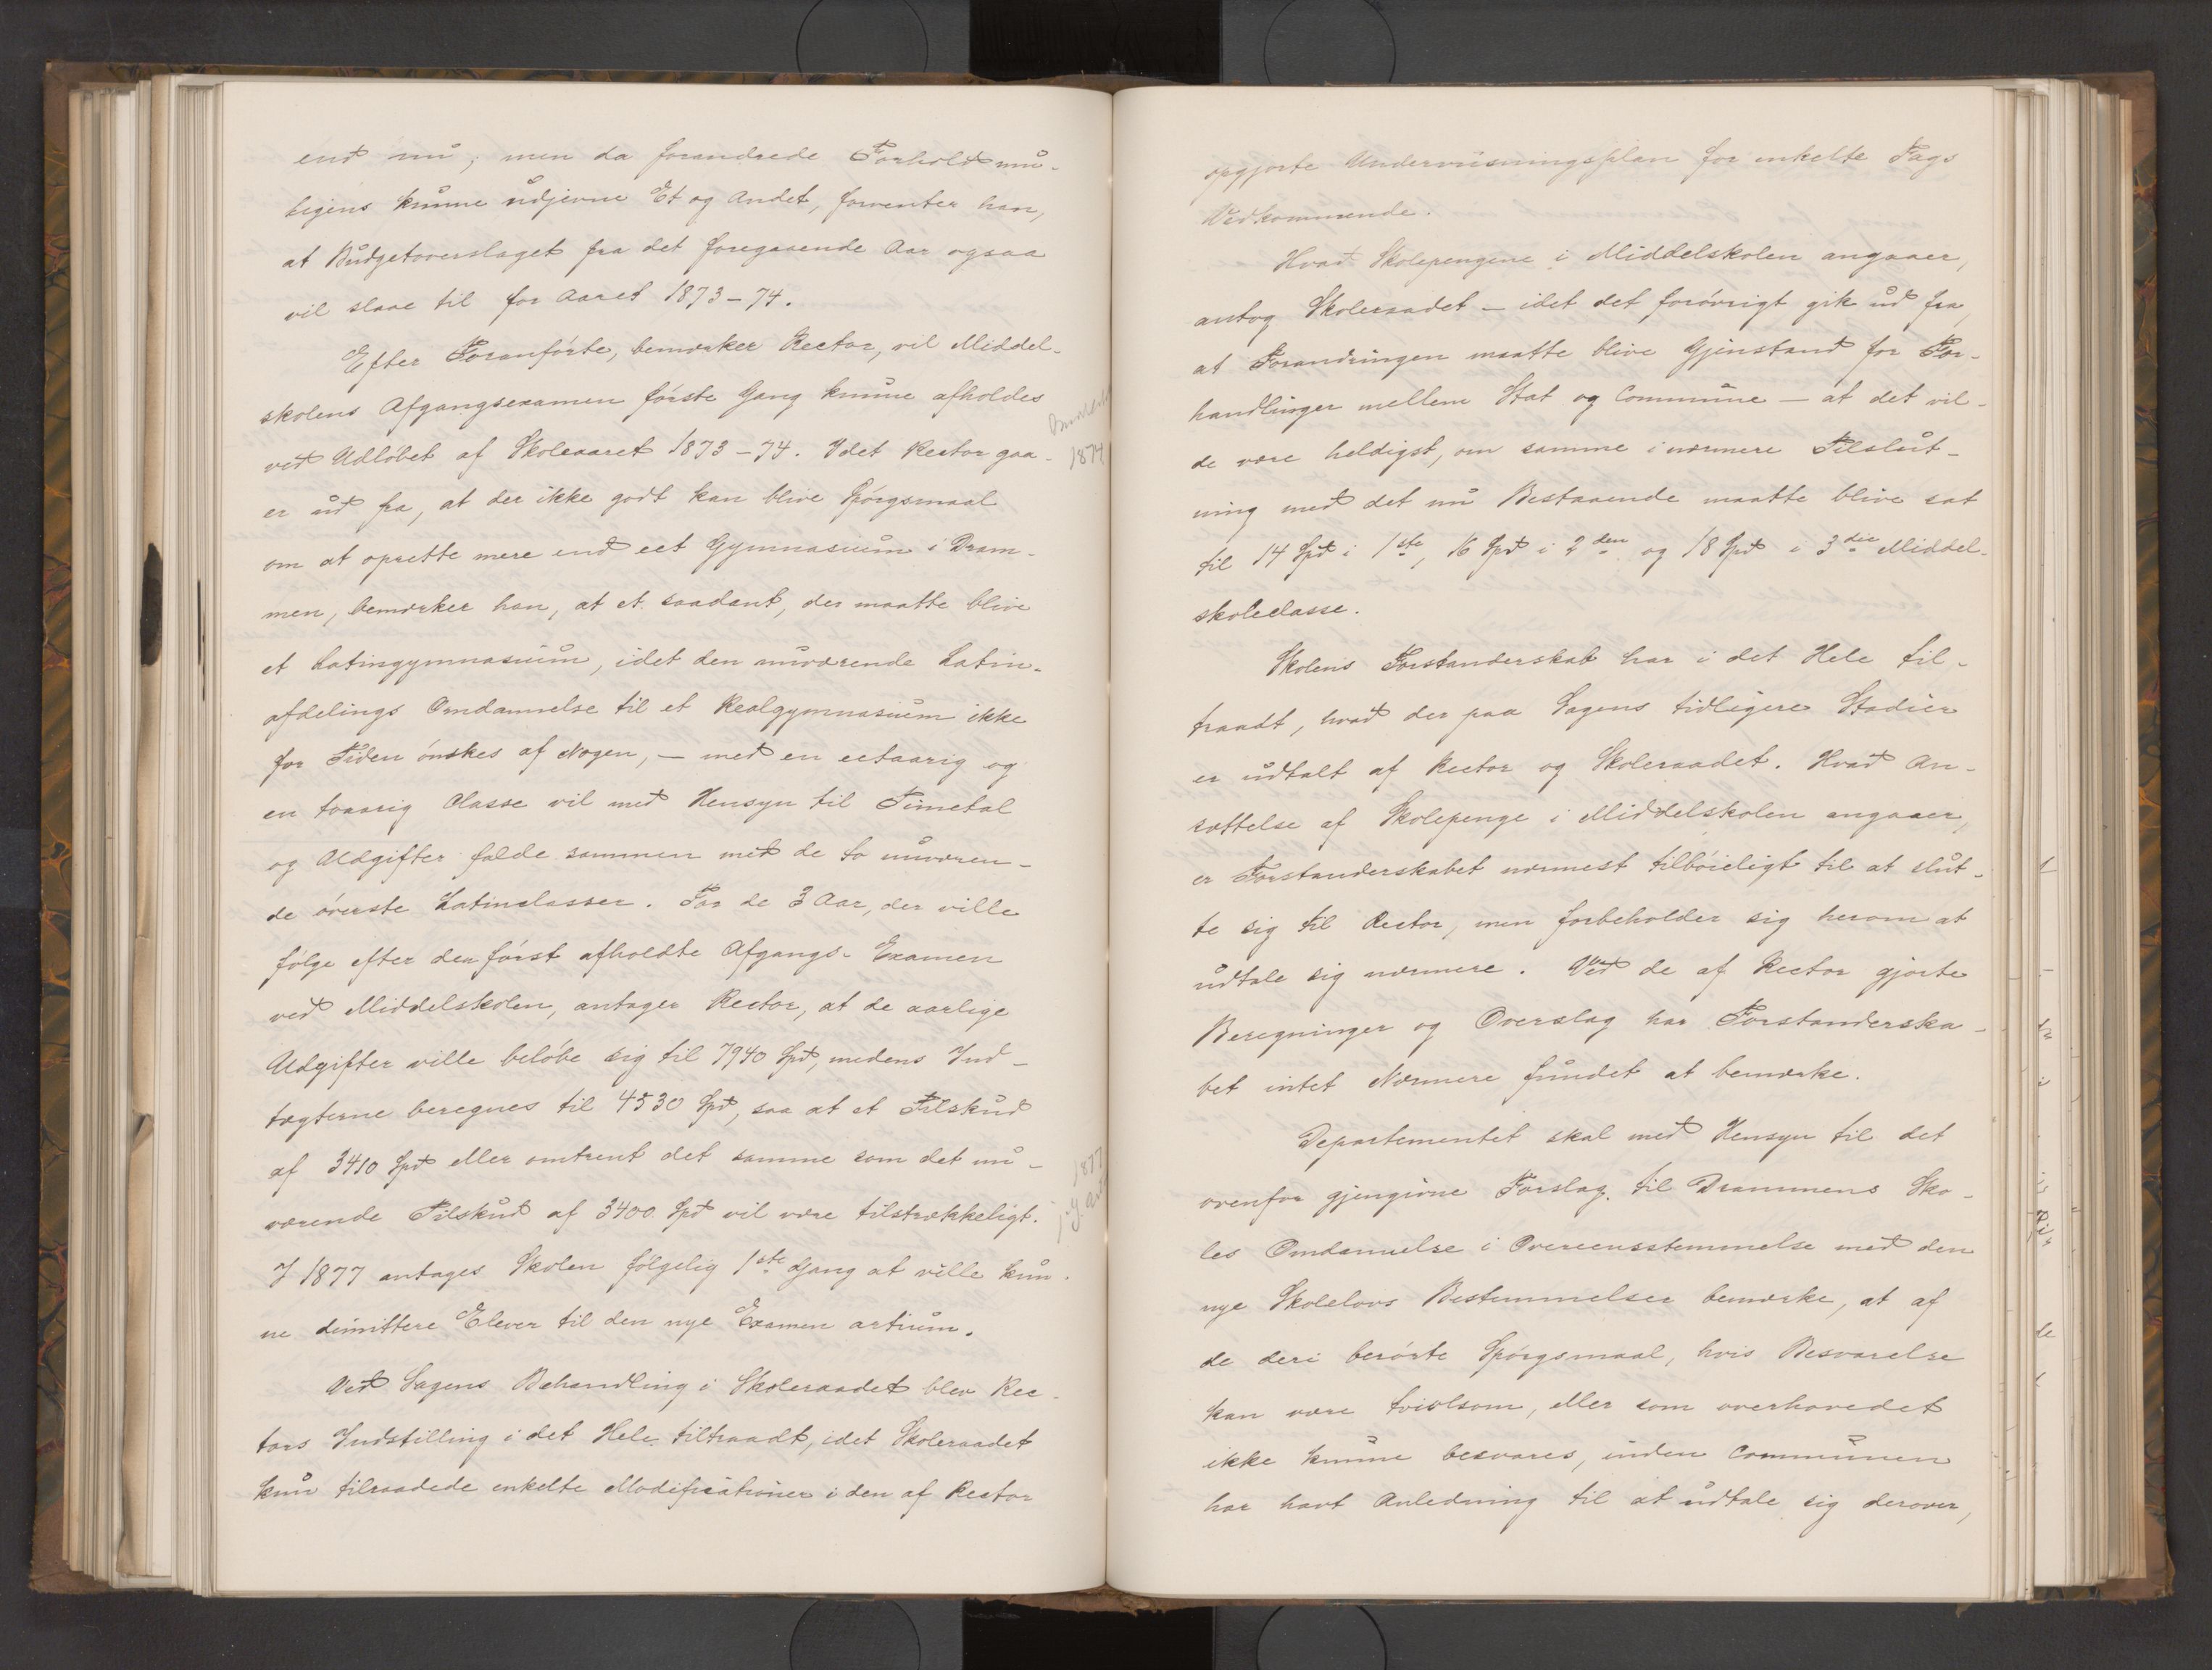 end nu, men da forandrede Forhold mu-
ligens kunne udjevne Et og Andet, forventer han,
at Budgetoverslaget fra det foregaaende Aar ogsaa
vil slaae til for Aaret 1873-74.
Efter Foranførte, bemærker Rector, vil Middel-
skolens Afgangsexamen første Gang kunne afholdes
ved Udløbet af Skoleaaret 1873-74. Idet Rector gaa-
1874
er ud fra, at der ikke godt kan blive Spørgsmaal
om at oprette mere end eet Gymnasium i Dram-
men, bemærker han, at et saadant, der maatte blive
et Latingymnasium, idet den nuværende Latin-
afdelings Omdannelse til et Realgymnasium ikke
for Tiden ønskes af Nogen, - med en eetaarig og
en toaarig Classe vil med Hensyn til Timetal
og Udgifter falde sammen med de to nuværen-
de øverste Latinclasser. For de 3 Aar, der ville
følge efter den først afholdte Afgangs-Examen
ved Middelskolen, antager Rector, at de aarlige
Udgifter ville beløbe sig til 7940 Spd, medens Ind-
tægterne beregnes til 4530 Spd, saa at et Tilskud
af 3410 Spd eller omtrent det samme som det nu-
1877
værende Tilskud af 3400 Spd vil være tilstrækkeligt.
I 1877 antages Skolen følgelig 1ste Gang at ville kun-
ne dimittere Elever til den nye Examen artium.
Ved Sagens Behandling i Skoleraadet blev Rec-
tors Indstilling i det Hele tiltraadt, idet Skoleraadet
kun tilraadede enkelte Modificationer i den af Rector
opgjorte Underviisningsplan for enkelte Fags
Vedkommende.
Hvad Skolepengene i Middelskolen angaaer,
antog Skoleraadet - idet det forøvrigt gik ud fra,
at Forandringen maatte blive Gjenstand for For-
handlinger mellem Stat og Commune - at det vil-
de være heldigst, om samme i nærmere Tilslut-
ning med det nu Bestaaende maatte blive sat
til 14 Spd i 1ste, 16 Spd i 2den og 18 Spd i 3die Middel-
skoleclasse.
Skolens Forstanderskab har i det Hele til-
traadt, hvad der paa Sagens tidligere Stadier
er udtalt af Rector og Skoleraadet. Hvad An-
sættelse af Skolepenge i Middelskolen angaaer,
er Forstanderskabet nærmest tilbøieligt til at slut-
te sig til Rector, men forbeholder sig herom at
udtale sig nærmere. Ved de af Rector gjorte
Beregninger og Overslag har Forstanderska-
bet intet Nærmere fundet at bemærke.
Departementet skal med Hensyn til det
ovenfor gjengivne Forslag til Drammens Sko-
les Omdannelse i Overeensstemmelse med den
nye Skolelovs Bestemmelser bemærke, at af
de deri berørte Spørgsmaal, hvis Besvarelse
kan være tvivlsom, eller som overhovedet
ikke kunne besvares, inden Communen
har havt Anledning til at udtale sig derover,